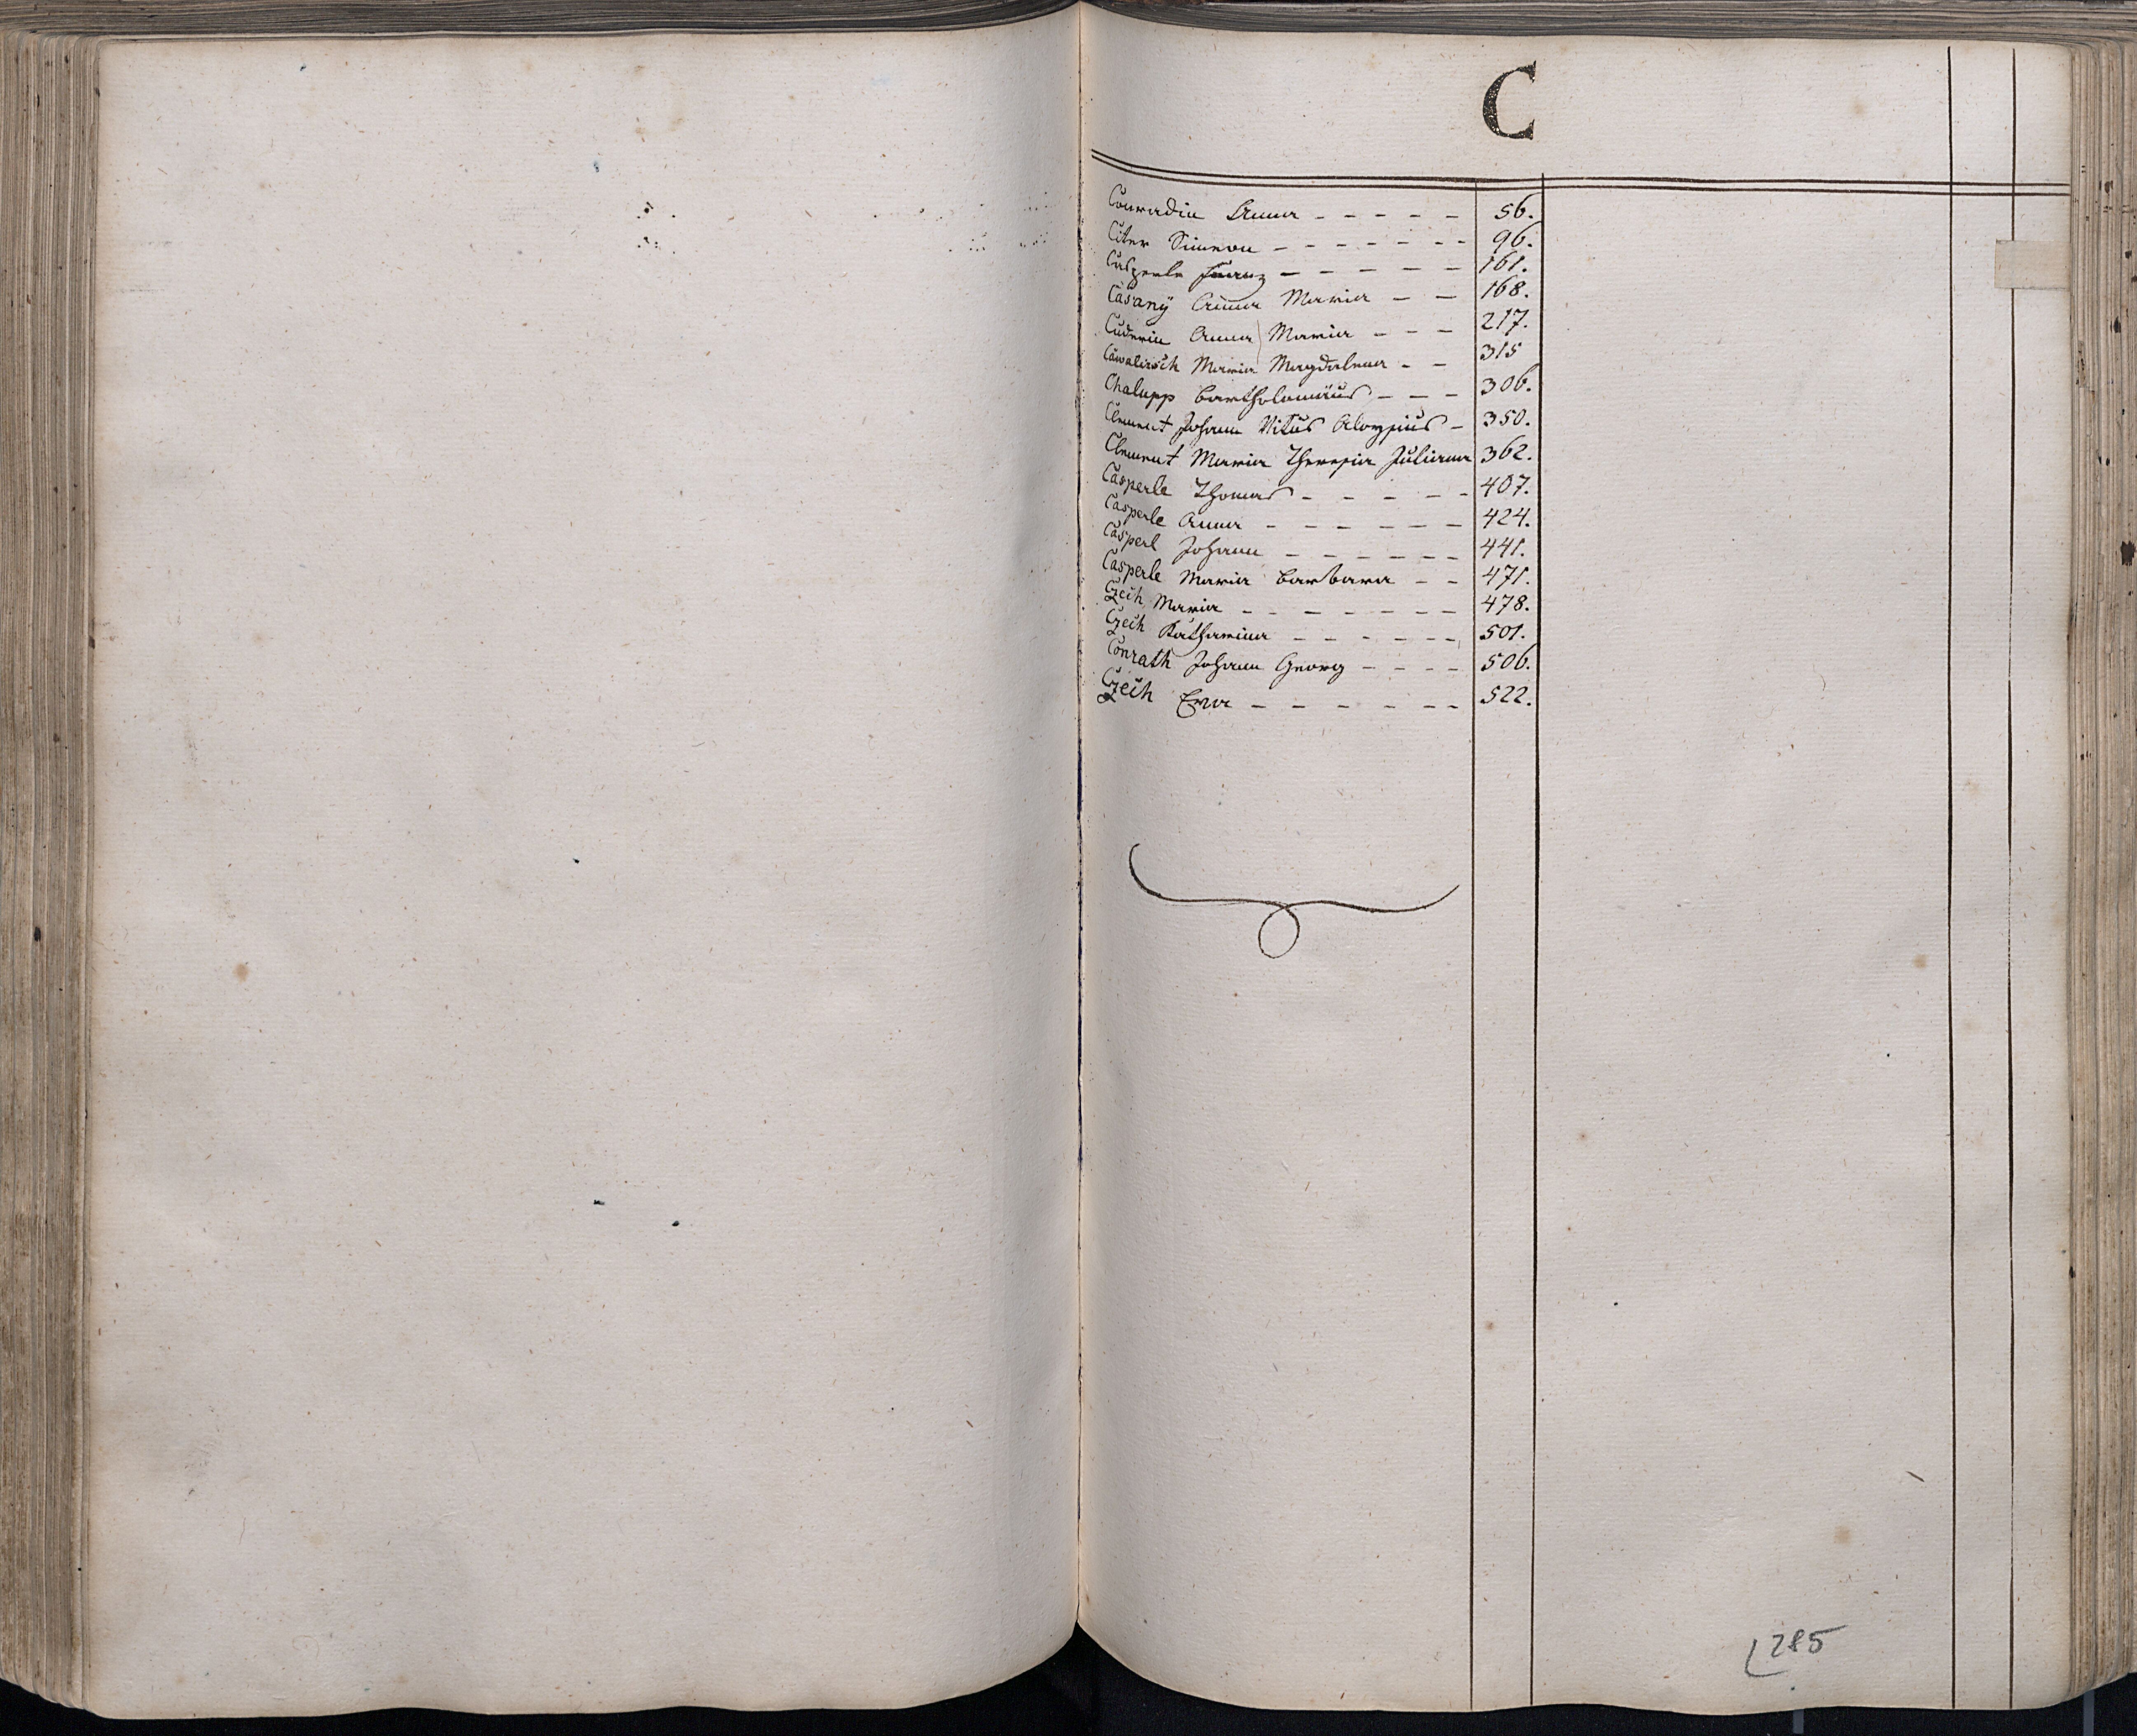 C
Conradin Anna - - - - - 56.
Citer Simeon - - - - - - - 96.
Casperle Franz - - - - - 161.
Casanÿ Anna Maria - - 168.
Cuderin Anna Maria - - - 217.
Cawalirsch Maria Magdalena - - 315
Chalupp Bartholomäus - - - 306.
Clement Johann Vitus Aloysius - 350.
Clement Maria Theresia Juliana 362.
Casperle Thomas - - - - - 407.
Casperle Anna - - - - - - 424.
Casperl Johann - - - - - - 441.
Casperle Maria Barbara - - 471.
Czech Maria - - - - - - - 478.
Czech Katharina - - - - - - 501.
Conrath Johann Georg - - - - 506.
Czech Eva - - - - - - 522.
285